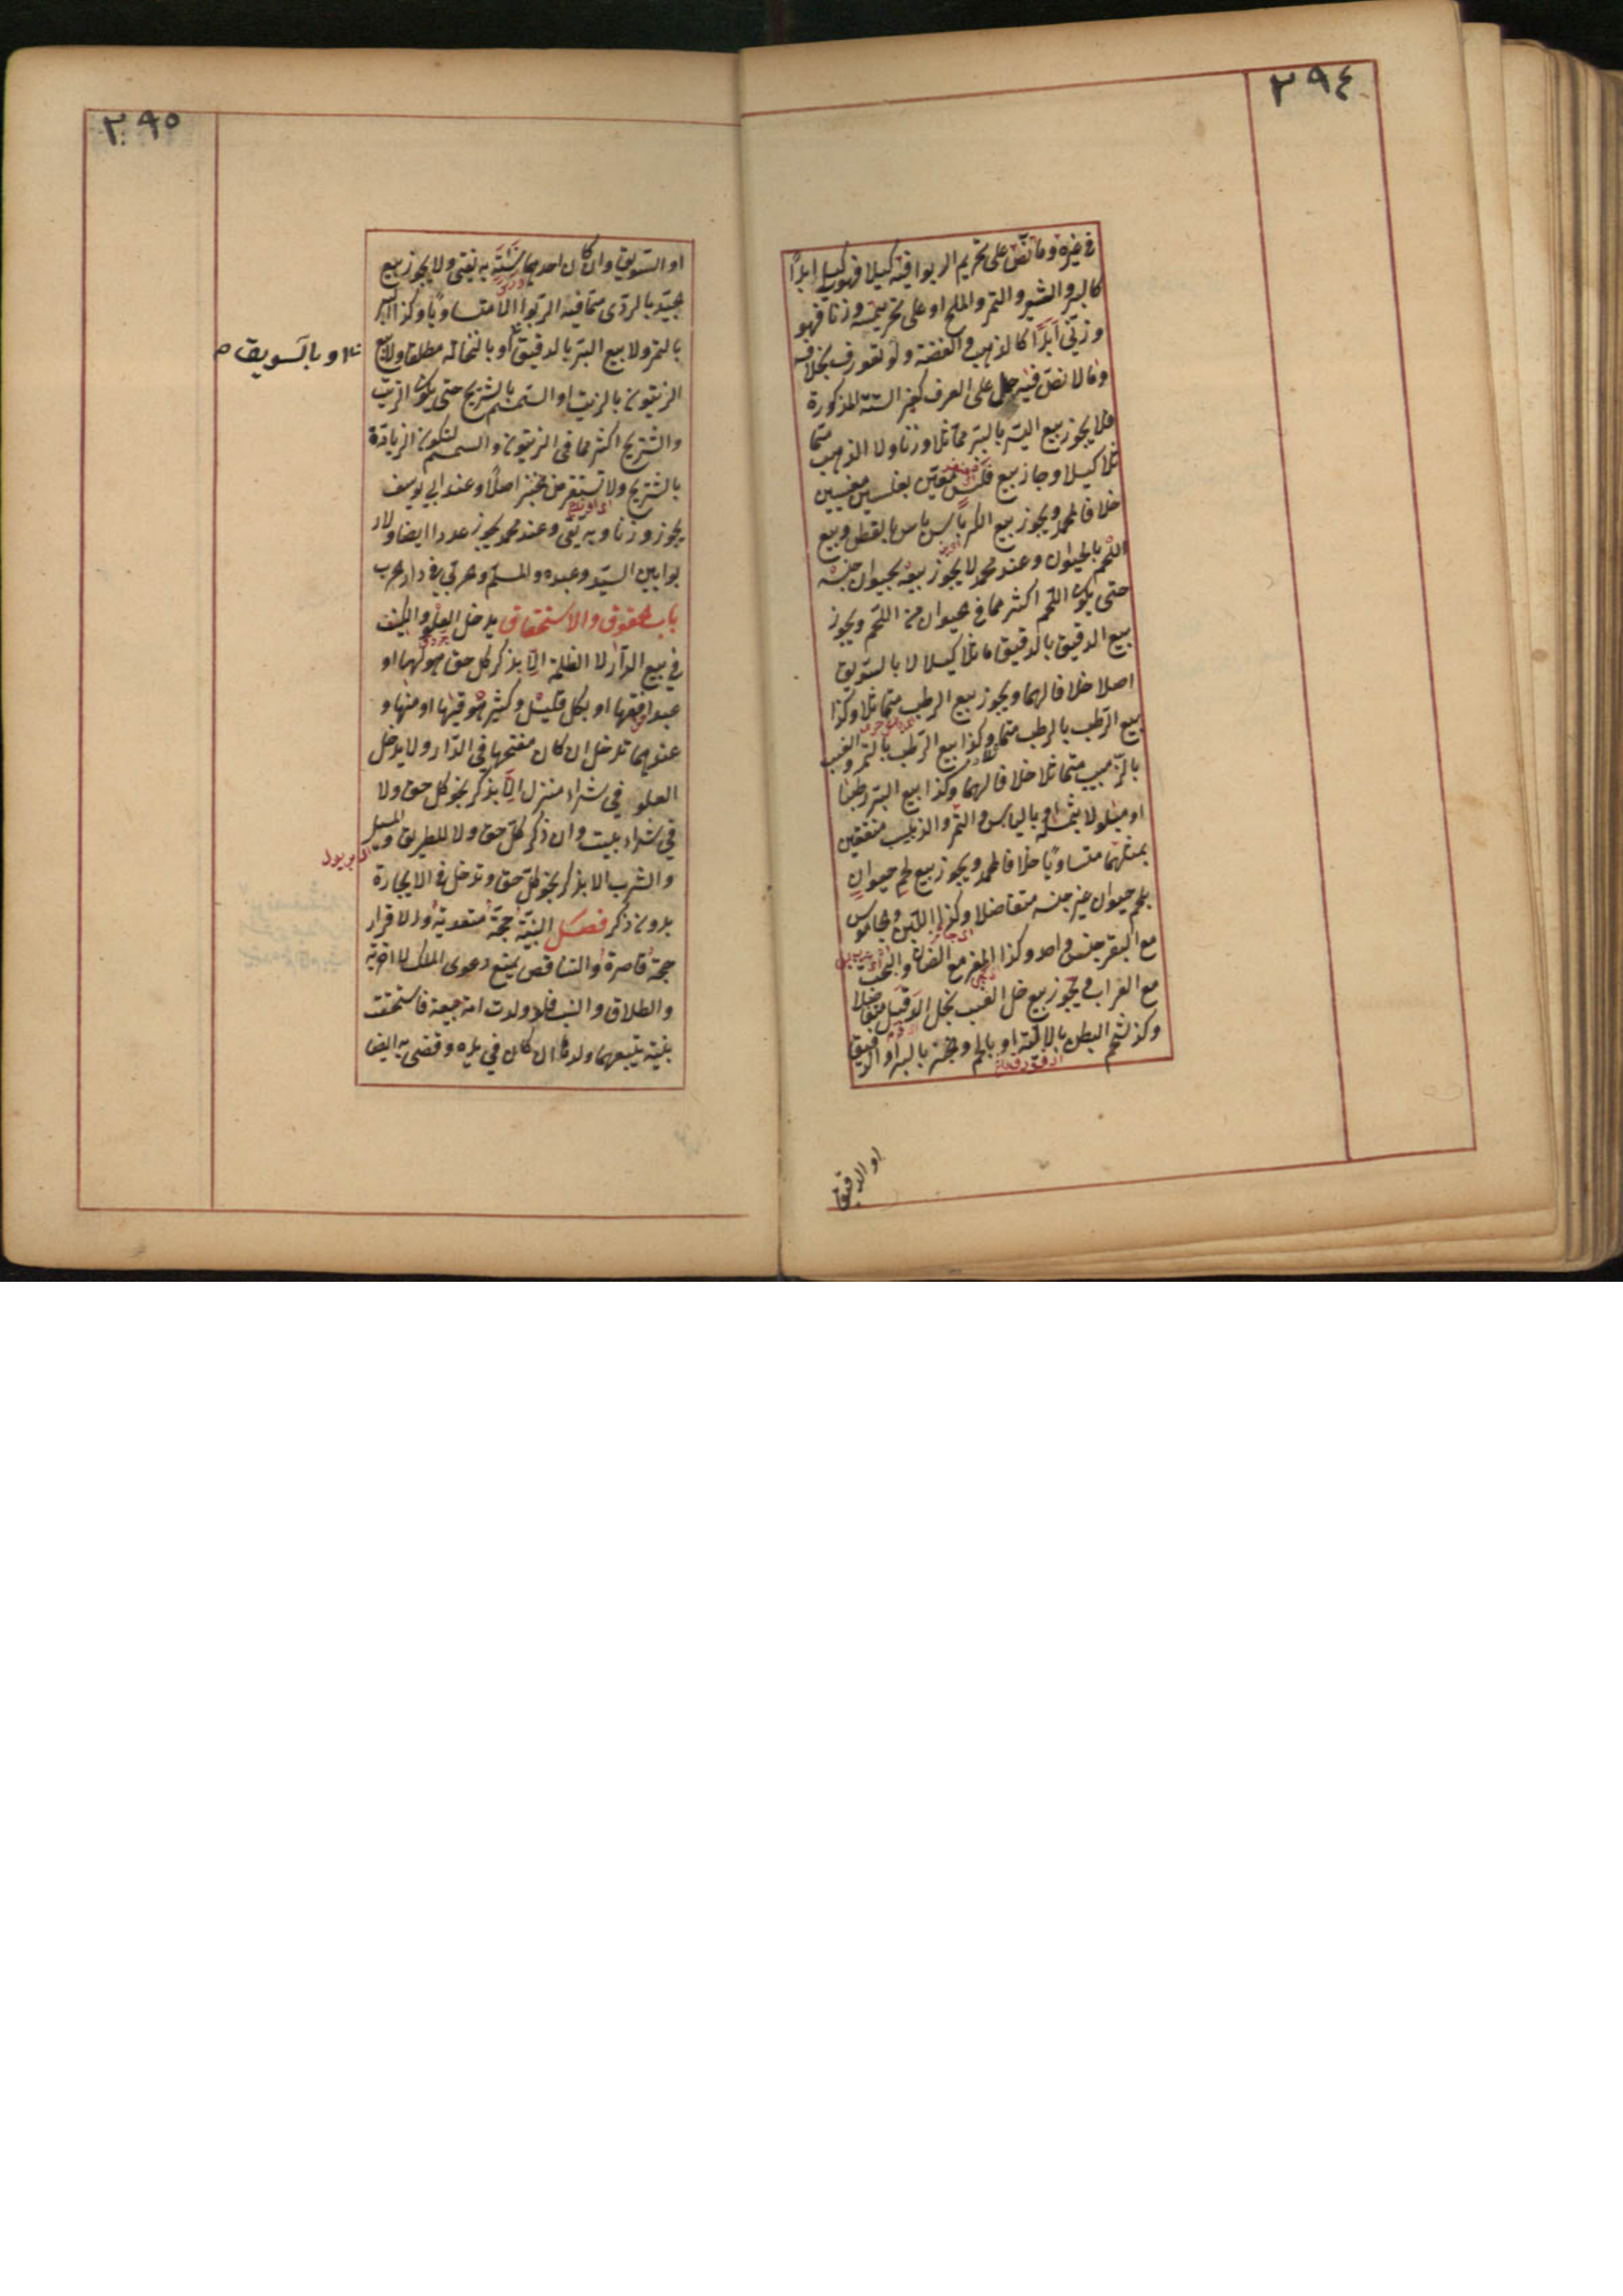 ٢٩٤
في غيره وما نص على تحريم الربوا فيه كيلا فهو كيلي ابدًا
كالبر والشعير والتمر والملح او على تحريمه وزنا فهو
وزنّي ابدًا كالذهب والفضة ولو تعورف بخلافه
وما لا نصّ فيه حمل على العرف كغير الستة المذكورة
فلا يجوز بيع البرّ بالبر متماثلا وزنا ولا الذهب متما
ثلا كيلا وجاز بيع فلس معين بفلسين معينين
خلافا لمحمد ويجوز بيع الكرباس بالقطن وبيع
اللحم بالحيوان وعند محمد لا يجوز بيعه بحيوان جنسه
حتى يكون اللحم اكثر مما في الحيوان من اللحم ويجوز
بيع الدقيق بالدقيق متماثلا كيلا لا بالسويق
اصلا خلافا لهما ويجوز بيع الرطب متماثلا وكذا
بيع الرّطب بالرطب متما وكذا بيع الرّطب بالتمر والعنب
بالزّبيب متماثلا خلافا لهما وكذا بيع البر رطبا
او مبلولا بمثله او باليابس والتمر والزبيب منقعين
بمثلهما متساويًا خلافا لمحمد ويجوز بيع لحم حيوان
بلحم حيوان غير جنسه متفاضلا وكذا اللبن والجاموس
مع البقر جنس واحد وكذا المعز مع الضان والبخت
مع العراب ويجوز بيع خل العنب بخل الدقل متفاضلا
وكذا شحم البطن بالالية او باللحم والخبز بالبر او الدقيق
او الدقيق
٢٩٥
او السّويق وان كان احدهما نسيئة به يفتى ولا يجوز بيع
الجيّد بالردّى ممّا فيه الرّبوا الا متساويًا وكذا البسر
بالتمر ولا بيع البرّ بالدقيق او بالنخالة مطلقا ولا بيع
او بالسويق
الزيتون بالزيت او السّمسم بالشيرج حتى يكون الزيت
والشيرج اكثر مما في الزيتون والسمسم لتكون الزيادة
بالشيرج ولا يستقرض الخبز اصلًا وعند ابي يوسف
يجوز وزنا وبه يفتى وعند محمد يجوز عددا ايضا ولا ر
بوا بين السيّد وعبده والمسلم والحربي في دار الحرب
باب الحقوق والاستحقاق يدخل العلو والكنيف
في بيع الدّار لا الظلة الّا بذكر كل حق هو لها او
بمرافقها او بكل قليل وكثير هو فيها او منها و
عندهما تدخل ان كان مفتحها في الدّار ولا يدخل
العلو في شراء منزل الّا بذكر نحو كل حق ولا
في شراء بيت وان ذكر كلّ حق ولا للطريق والمسيل
والشرب الا بذكر نحو كلّ حق وتدخل في الايجارة
بدون ذكر فصل البيّنة حجّة متعدية والاقرار
حجة قاصرة والتناقض يمنع دعوى الملك لا الحرية
والطلاق والنسب فلو ولدت امة مبيعة فاستحقت
ببينة يتبعها ولدها ان كان في يده وقضى به ايضا